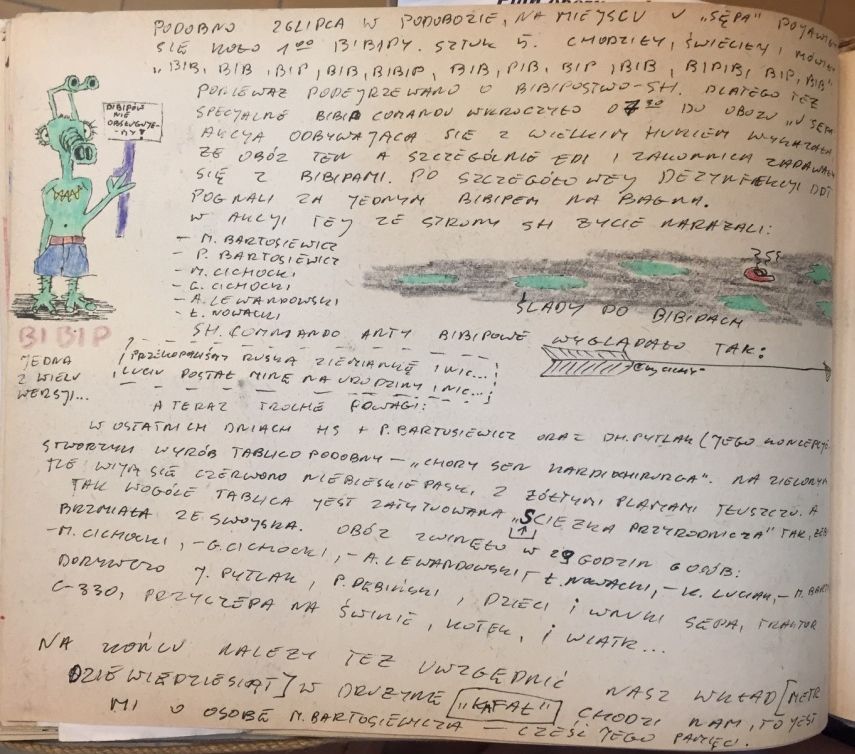 PODOBNO 26 LIPCA W PODOBOZIE, NA MIEJSCU U „SĘPA" POJAWIŁY
SIĘ KOŁO 1⁰⁰ BIBIPY. SZTUK 5. CHODZIŁY, ŚWIECIŁY I MÓWIŁY
„BIB, BIB, BIP, BIB, BIBIP, BIB, PIB, BIP, BIB, BIPIB, BIP, BIB"
PONIEWAŻ PODEJRZEWANO O BIBIPOSTWO - SH. DLATEGO TEŻ
SPECJALNE BIBIP COMANDO WKROCZYŁO O 7³⁰ DO OBOZU „U SĘPA
AKCJA ODBYWAJĄCA SIĘ Z WIELKIM HUKIEM WYKAZAŁA
ŻE OBÓZ TEN A SZCZEGÓLNIE EDI I ZAKONNICH ZADAWALI
SIĘ Z BIBIPAMI. PO SZCZEGÓŁOWEJ DEZYNFEKCJI DDT
POGNALI ZA JEDNYM BIBIPEM NA BAGNA.
W AKCJI TEJ ZE STRONY SH ŻYCIE NARAŻALI:
BIBIPÓW
NIE
OBSŁUGUJE-
-MY!
– M. BARTOSIEWICZ
– P. BARTOSIEWICZ
– M. CICHOCKI
– G. CICHOCKI
– A. LEWANDOWSKI
– Ł. NOWACKI
ŚLADY PO BIBIPACH
SH. COMMANDO ANTY BIBIPOWE WYGLĄDAŁO TAK:
BIBIP
JEDNA
Z WIELU
WERSJI...
PRZEKOPALIŚMY RUSKĄ ZIEMIANKĘ I NIC...
LUCIU DOSTAŁ MINĘ NA URODZINY I NIC...
A TERAZ TROCHĘ POWAGI:
W OSTATNICH DNIACH HS + P. BARTOSIEWICZ ORAZ DH. PYTLAK (JEGO KONCEPCJA)
STWORZYLI WYRÓB TABLICO PODOBNY – „CHORY SEN KARDIOCHIRURGA". NA ZIELONYM
TLE WIJĄ SIĘ CZERWONO NIEBIESKIE PASKI, Z ŻÓŁTYMI PLAMAMI TŁUSZCZU. A
TAK WOGÓLE TABLICA JEST ZATYTUŁOWANA „SCIEŻKA PRZYRODNICZA" TAK, ŻEBY
BRZMIAŁA ZE SWOJSKA. OBÓZ ZWINĘŁO W 29 GODZIN 6 OSÓB:
– M. CICHOCKI, – G. CICHOCKI, – A. LEWANDOWSKI, – Ł. NOWACKI, – K. LUCIAK, – M. BART
DORYWCZO J. PYTLAK, P. DĘBIŃSKI, DZIECI I WNUKI SĘPA, TRAKTOR
C-330, PRZYCZEPA NA ŚWINIE, KOTEK, I WIATR...
NA KOŃCU NALEŻY TEŻ UWZGLĘDNIĆ NASZ WKŁAD [METR
DZIEWIĘDZIESIĄT] W DRUŻYNĘ „KAFAŁ" CHODZI NAM, TO JEST
MI O OSOBĘ M. BARTOSIEWICZA – CZEŚĆ JEGO PAMIĘCI.